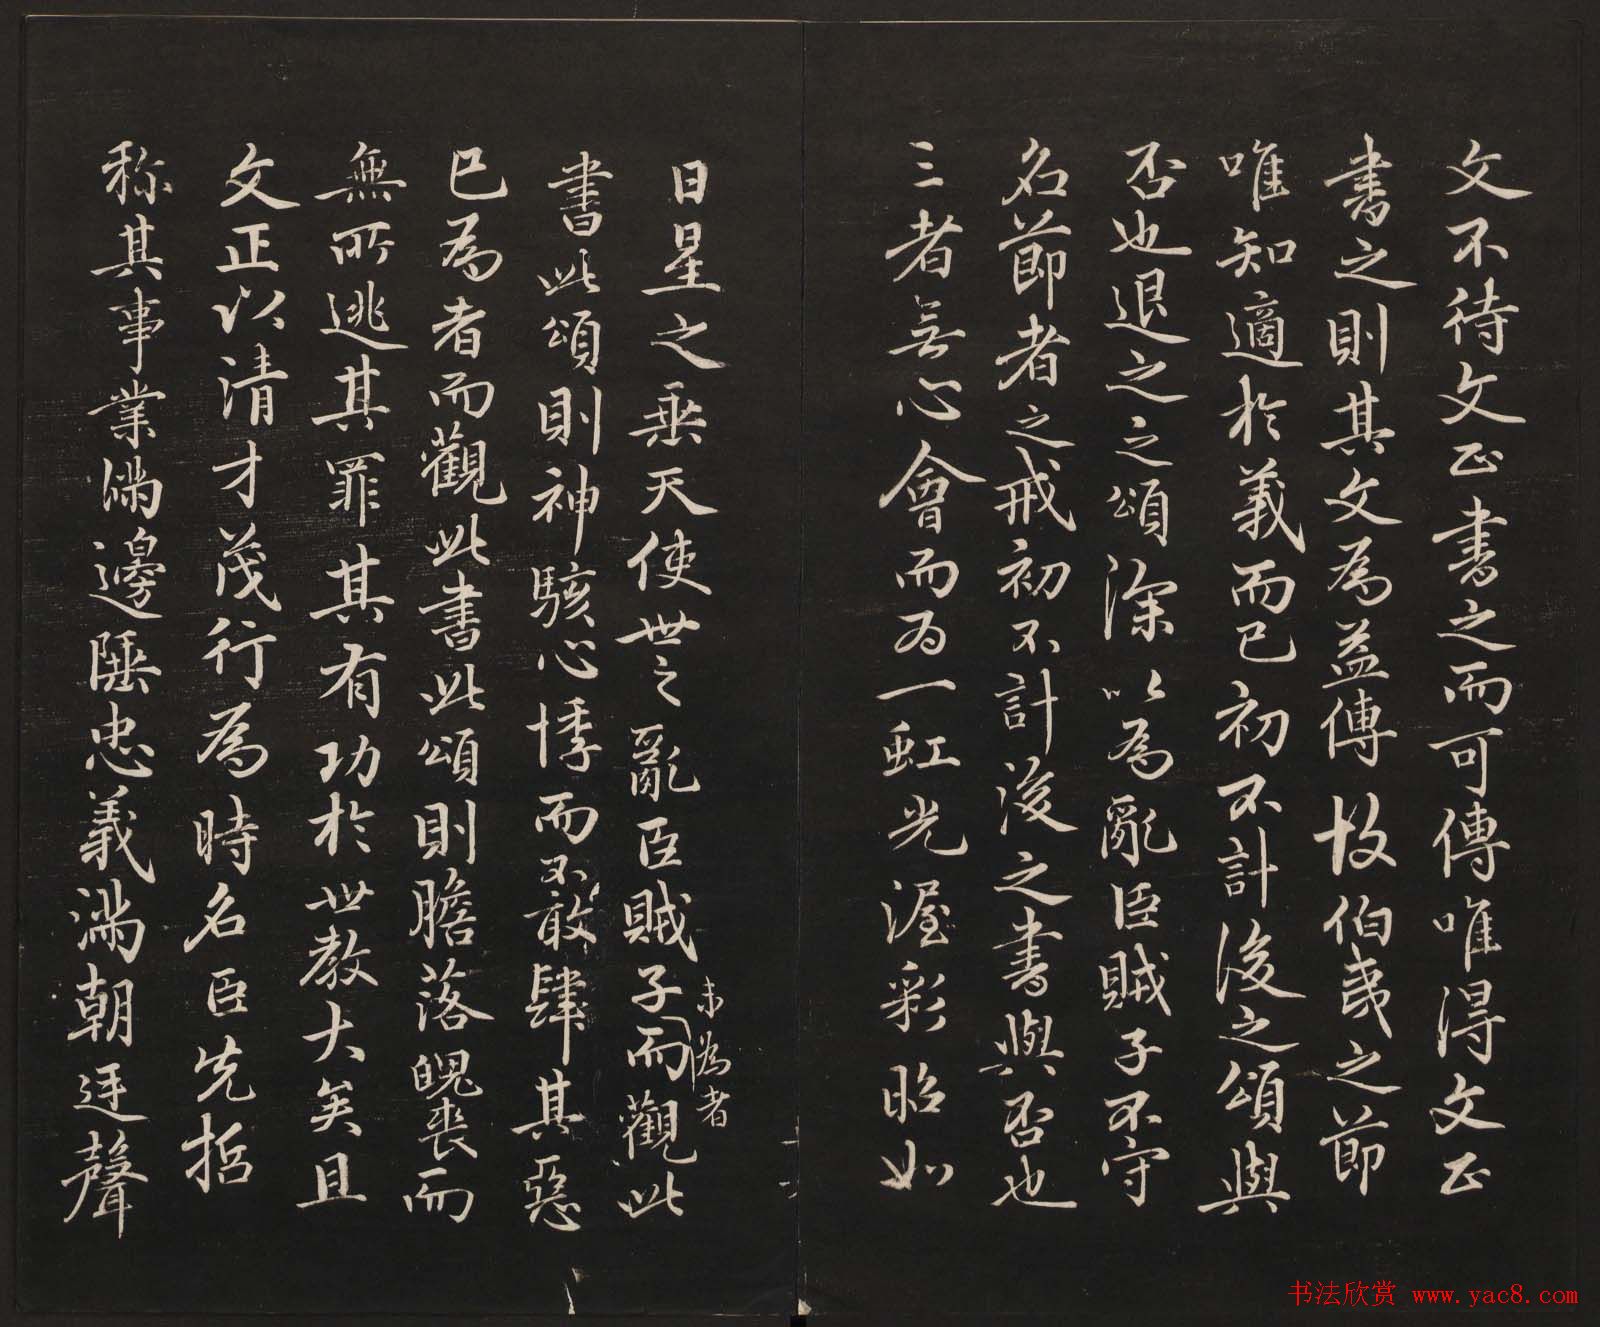 文不待文正書之而可傳唯得文正
書之則其文為益傳故伯夷之節
唯知適於義而已初不計後之頌與
否也退之之頌深以為亂臣賊子不守
名節者之戒初不計後之書與否也
三者無心會而為一虹光渥彩昭如
日星之垂天使世之亂臣賊子而觀此
未為者
書此頌則神駭心悸而不敢肆其惡
已為者而觀此書此頌則膽落魄喪而
無所逃其罪其有功於世教大矣且
文正以清才茂行為時名臣先哲
称其事業滿邊陲忠義滿朝廷聲
书法欣赏 www.yac8.com